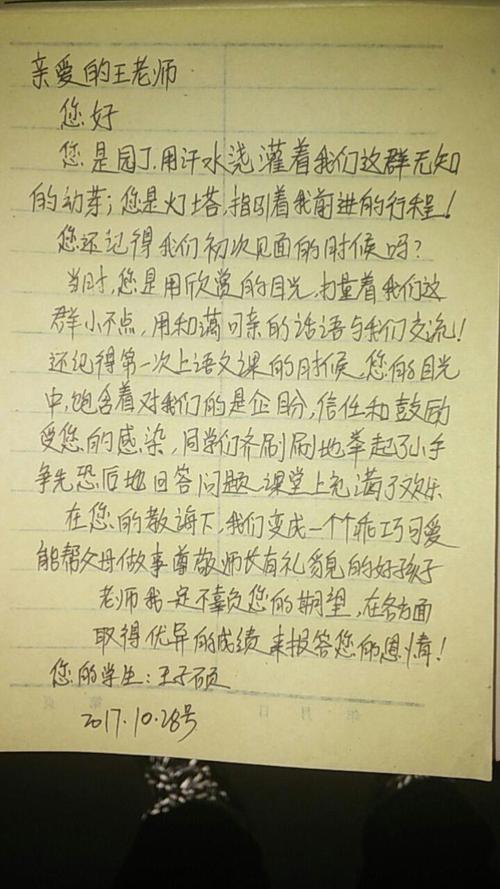 亲爱的王老师
您好
您是园丁,用汗水浇灌着我们这群无知
的幼芽;您是灯塔,指引着我前进的行程!
您还记得我们初次见面的时候吗?
当时,您是用欣赏的目光,打量着我们这
群小不点,用和蔼可亲的话语与我们交流!
还记得第一次上语文课的时候,您的目光
中,饱含着对我们的是企盼,信任和鼓励
受您的感染,同学们齐刷刷地举起了小手
争先恐后地回答问题,课堂上充满了欢乐
在您的教诲下,我们变成一个个乖巧可爱
能帮父母做事尊敬师长有礼貌的好孩子
老师我一定不辜负您的期望,在各方面
取得优异的成绩,来报答您的恩情!
您的学生:王子硕
2017.10.28号